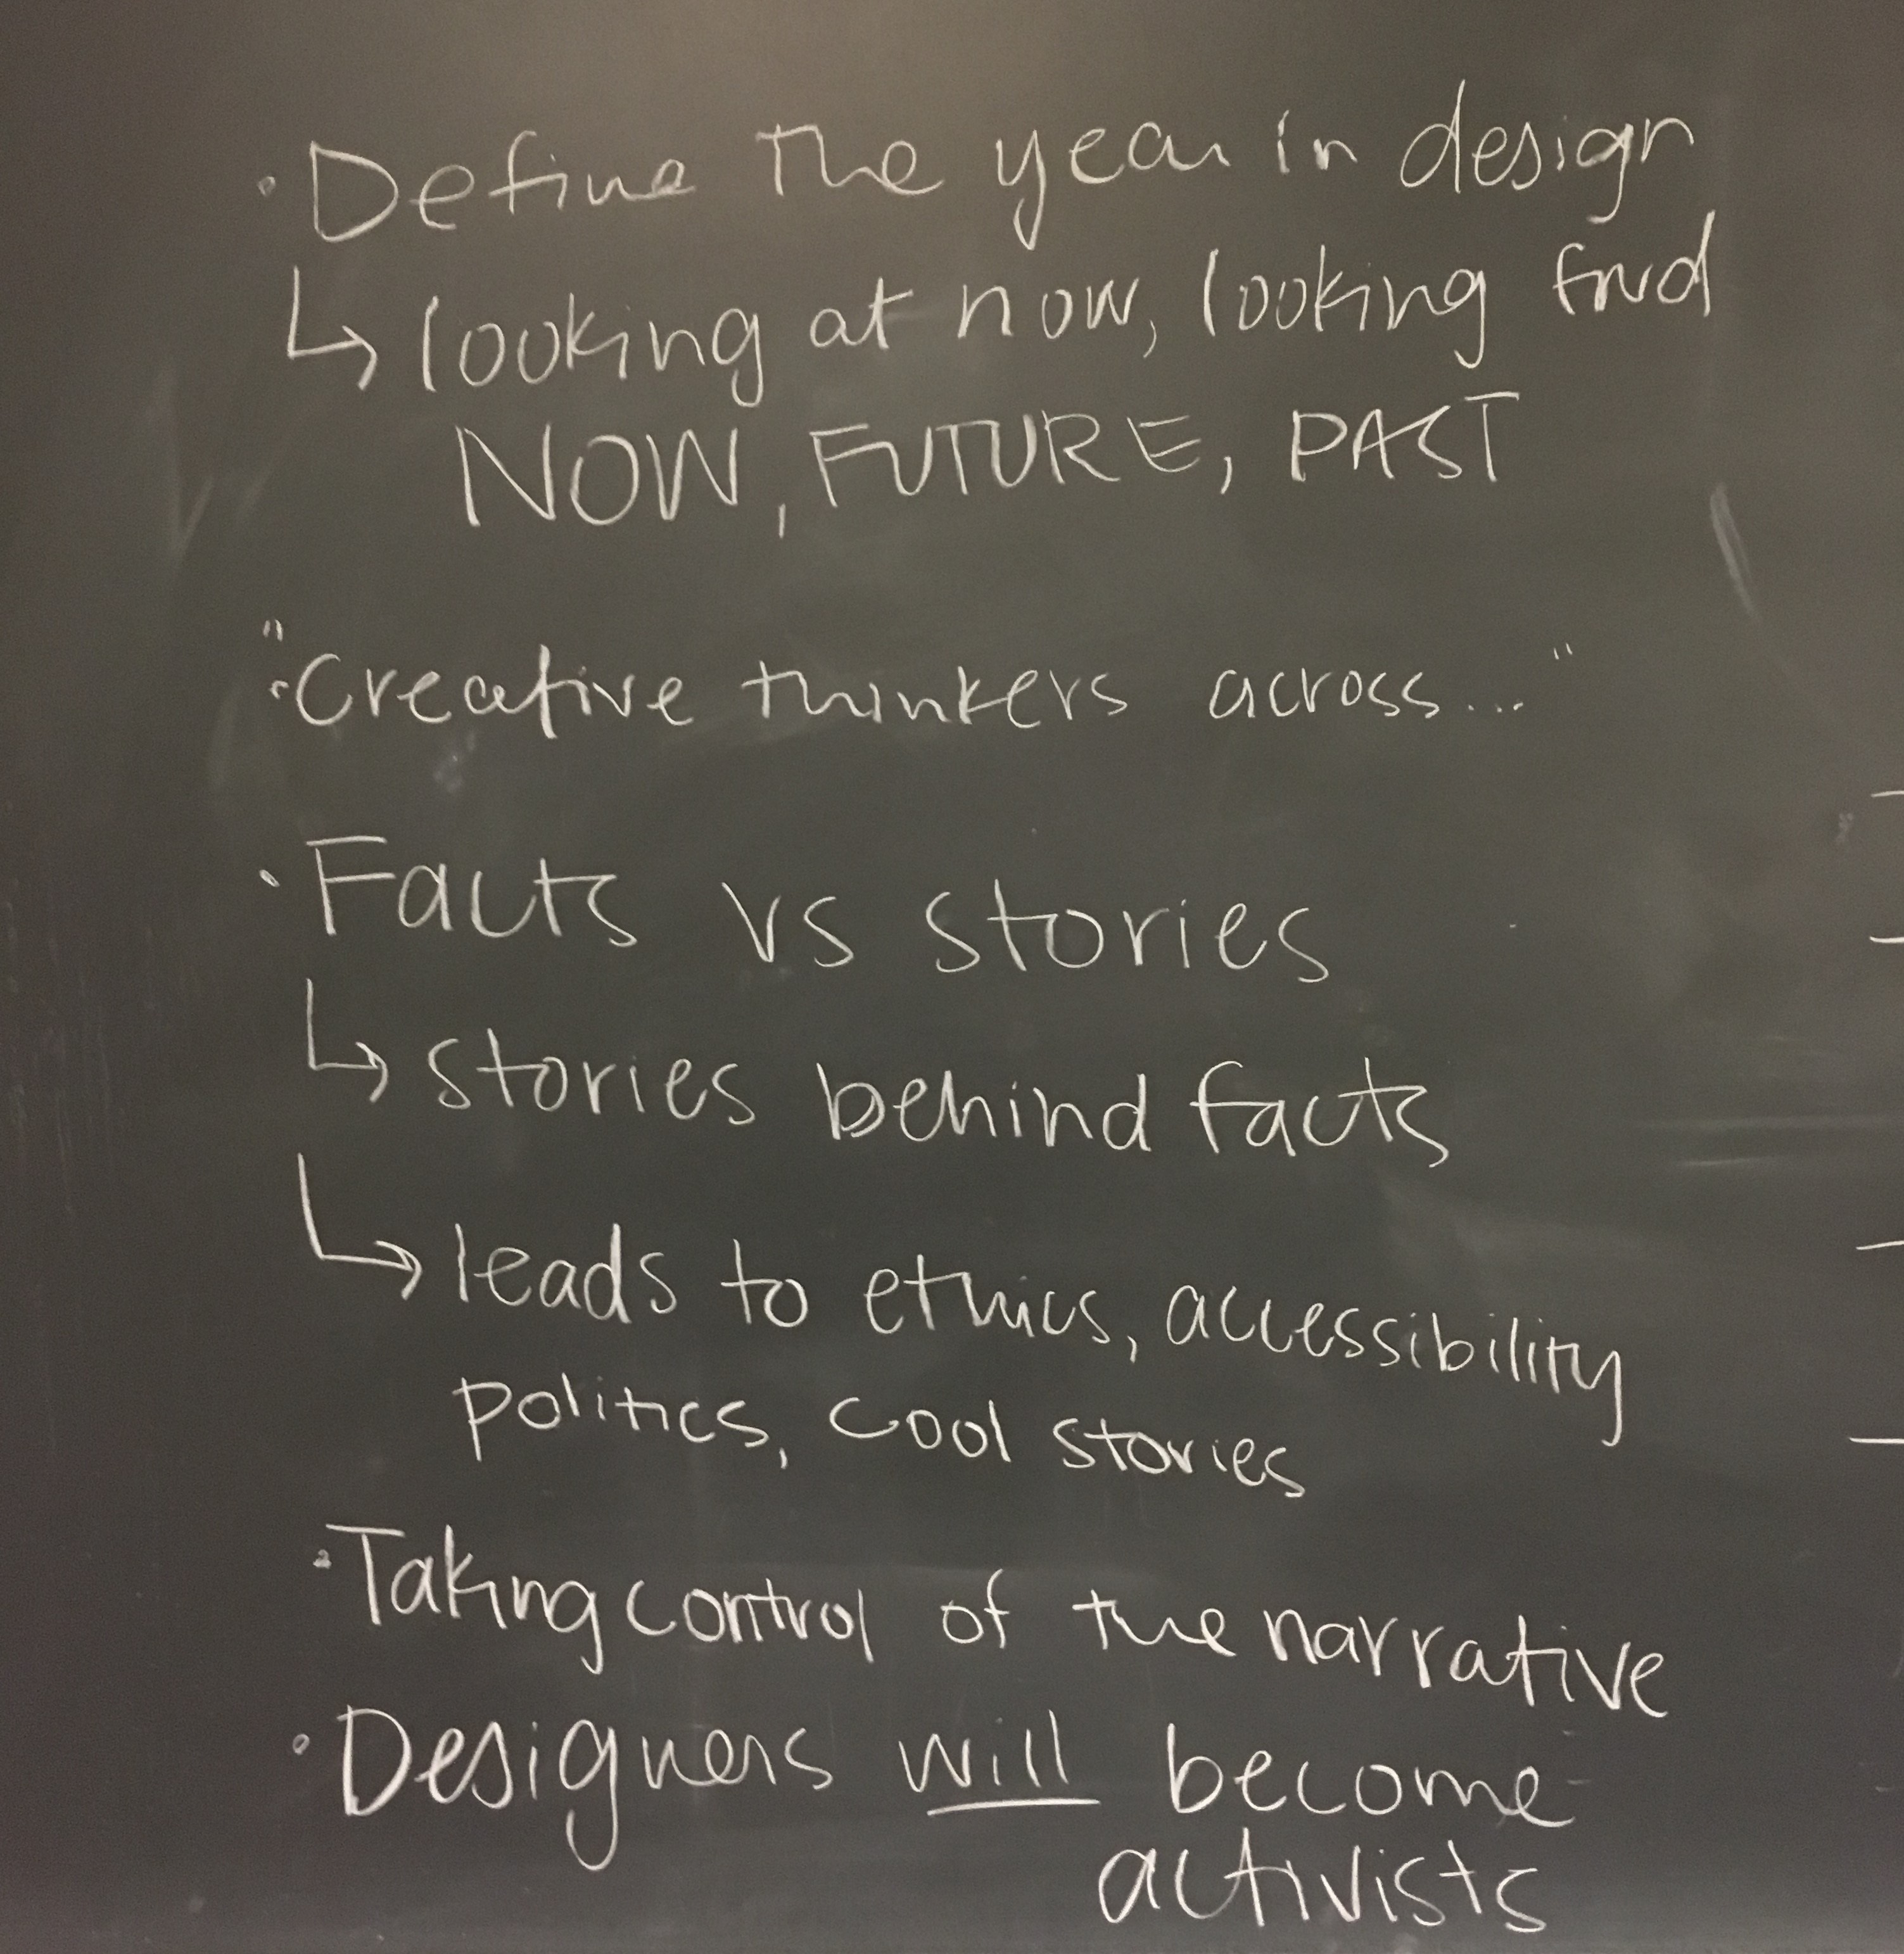 · Define the year in design
↳ looking at now, looking fwd
NOW, FUTURE, PAST
"· Creative thinkers across..."
· Facts vs stories
↳ stories behind facts
↳ leads to ethics, accessibility
politics, cool stories
· Taking control of the narrative
· Designers will become
activists